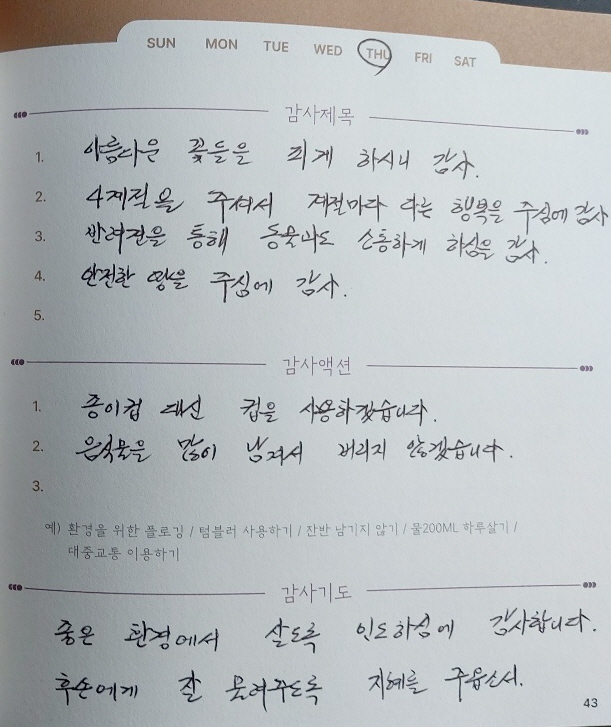 SUN MON TUE WED THU FRI SAT
감사제목
1. 아름다운 꽃들을 피게 하시니 감사.
2. 4계절을 주셔서 계절마다 다른 행복을 주심에 감사
3. 반려견을 통해 동물과도 소통하게 하심을 감사.
4. 안전한 땅을 주심에 감사.
5.
감사액션
1. 종이컵 대신 컵을 사용하겠습니다.
2. 음식물을 많이 남겨서 버리지 않겠습니다.
3.
예) 환경을 위한 플로깅 / 텀블러 사용하기 / 잔반 남기지 않기 / 물200ML 하루살기 /
대중교통 이용하기
감사기도
좋은 환경에서 살도록 인도하심에 감사합니다.
후손에게 잘 물려주도록 지혜를 주옵소서.
43